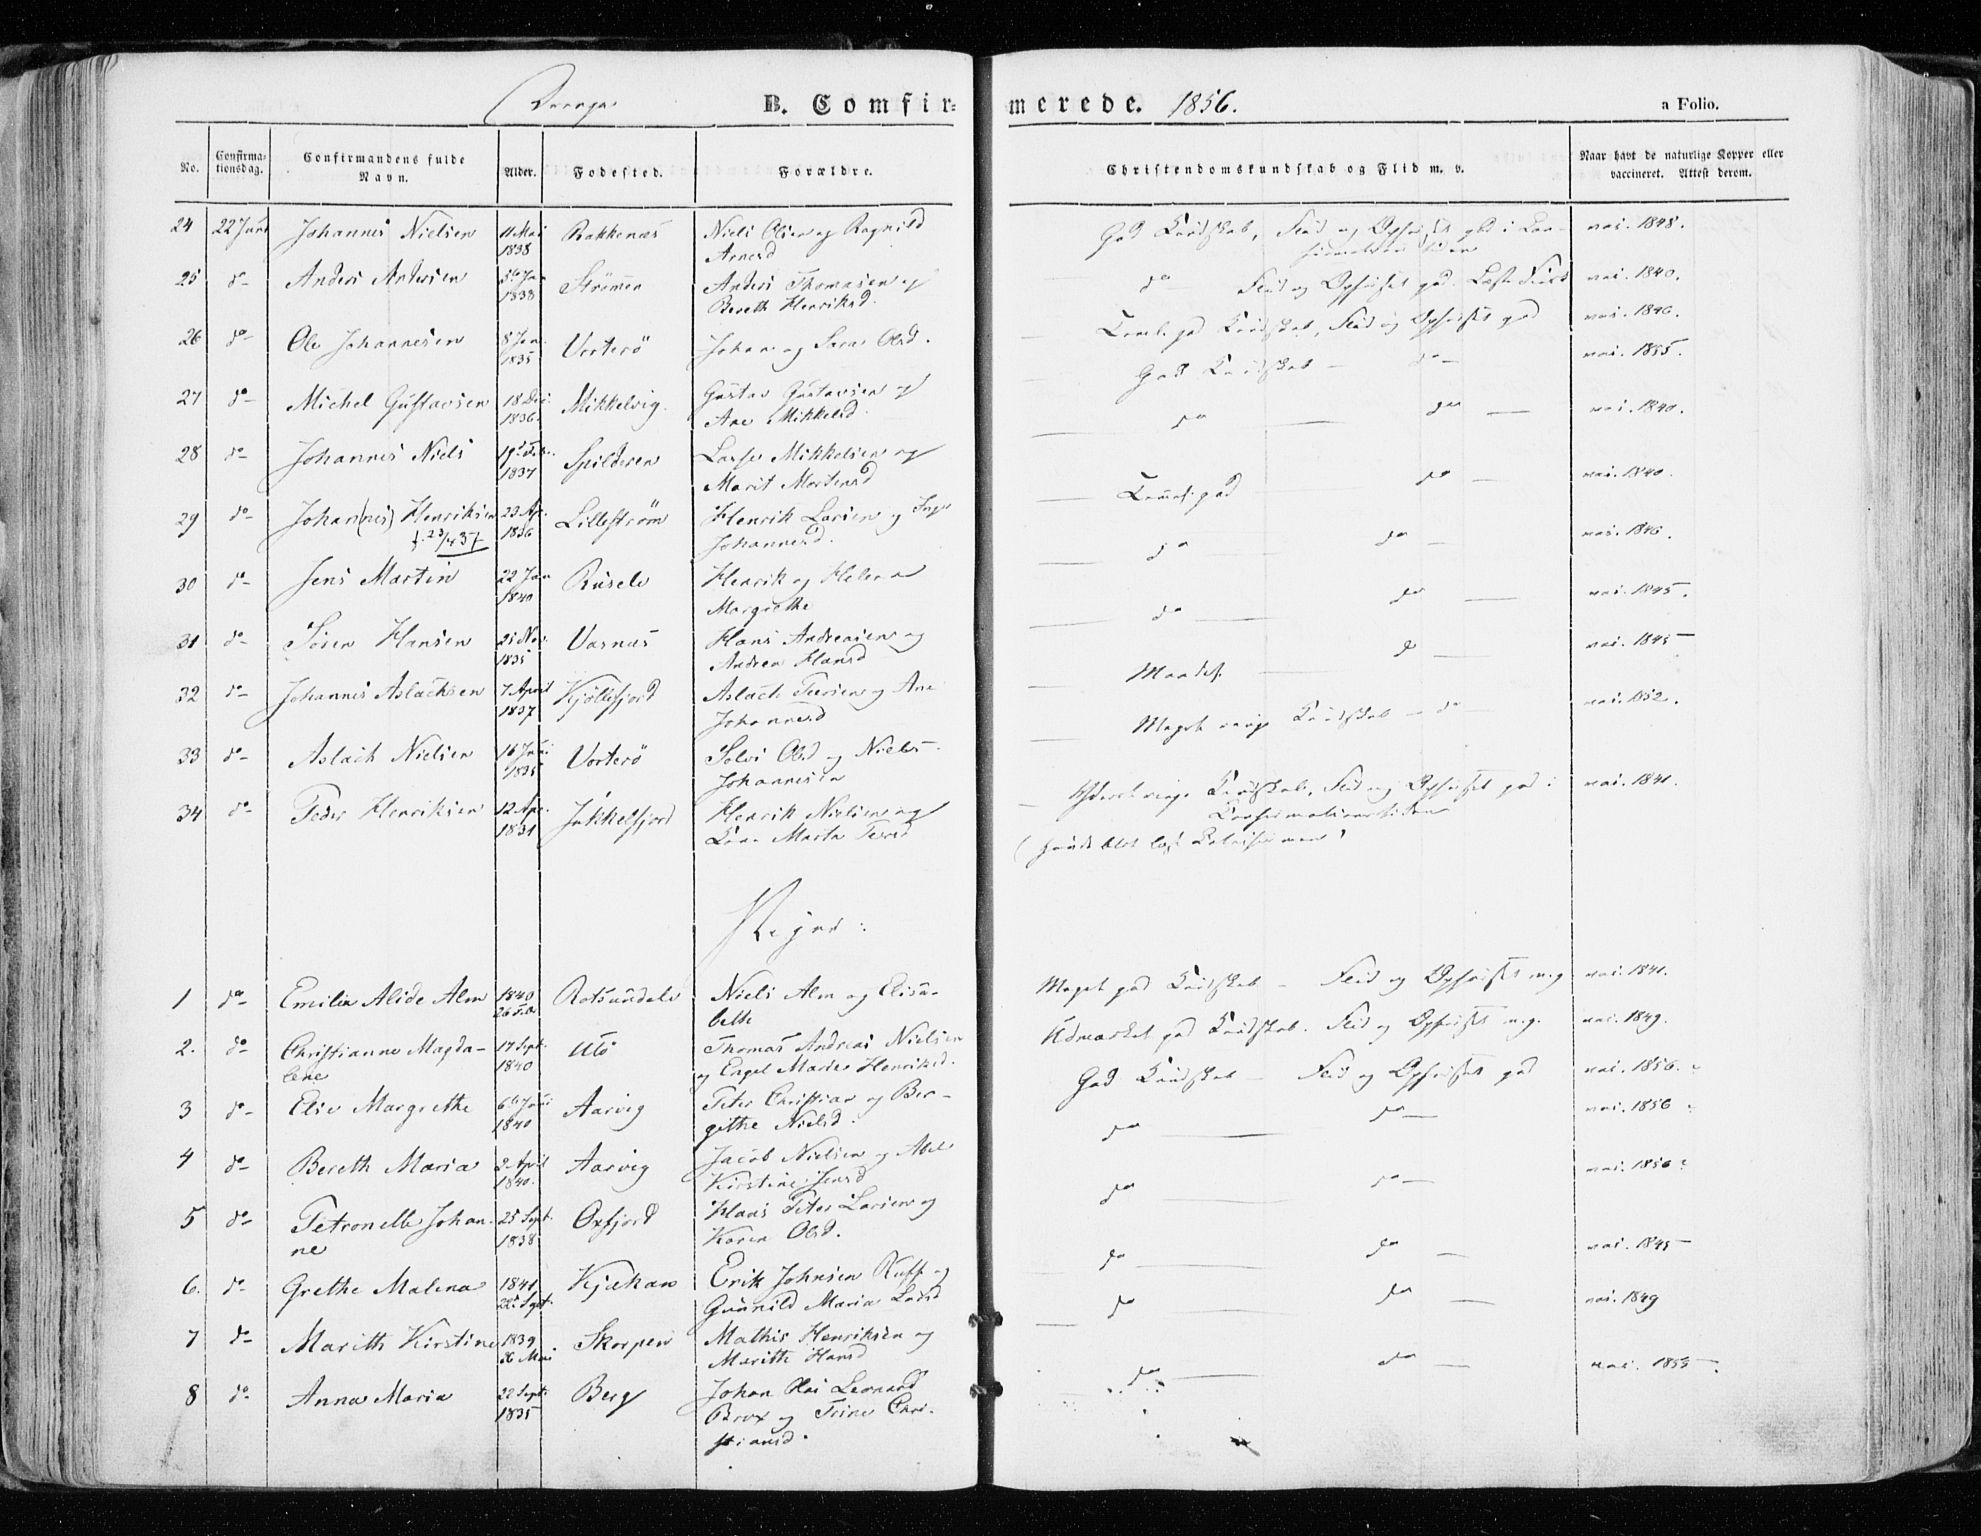 Drenge B. Comfirmerede. 1856. a Folio.
No. Confirmationsdag. Confirmandens fulde Navn. Alder. Fødested. Forældre. Christendomskundskab og Flid m. v. Naar havt de naturlige Kopper eller vaccineret. Attest derom.
24 22 Juni Johannes Nielsen 11 Mai 1838 Bakkenæs Niels Olsen og Ragnild Arnesd God Kundskab, Flid og Opførsel god i Confirmationstiden vac. 1848.
25 do Anders Andersen Jan 1838 Strømen Anders Thomasen og Bereth Henriksd. do Flid og Opførsel god. vac. 1840.
26 do Ole Johannesen 8 Jan. 1835 Vorterö Johan og Sara Olsd. Teml. god Kundskab, Flid og Opførsel god vac. 1846.
27 do Michel Gustavsen 18 Dec. 1836. Mikkelvig. Gustav Gustavsen og Ane Mikkelsd. God Kundskab - do - vac. 1855.
28 do Johannes Niels 19 Feb. 1837 Spilderen Lasse Mikkelsen og Marit Mortensd do do vac. 1840.
29 do Johan(nes) Henriksen 23 Ap. 1836 Lillestrøm Henrik Larsen og Inger Johannesd. Teml. god do vac. 1840.
f. 23/4 37
30 do Jens Martin 22 Jan 1840 Rusele Henrik og Helena Margrethe do do vac. 1846.
31 do Søren Hansen 25 Nov. 1835 Varnæs Hans Andreasen og Andrea Hansd do do vac. 1845.
32 do Johannes Aslachsen 7 April 1837 Kjöllefjord Aslach Peersen og Ane Johannesd Maadel. do vac. 1845
33 do Aslach Nielsen 16 Juni 1835 Vorterö Solvi Olsd og Niels Johannesen Meget ringe Kundskab - do - vac. 1852.
34 do Peder Henriksen 12 Apr. 1831 Jökkelfjord Henrik Nielsen og Marta Persd Yderst ringe Kundskab, Flid og Opførsel god i Confirmationstiden vac. 1841.
Piger:
1 do Emilie Alide Alm 1840 26 Feb. Rotsundelv Niels Alm og Elisabeth Meget god Kundskab - Flid og Opførsel m.g. vac. 1841.
2. do Christianne Magdalene 17 Sept. 1840 Utö Thomas Andreas Nielsen og Engel Marie Henriksd. Udmærket god Kundskab. Flid og Opførsel m.g. vac. 1849.
3 do Elise Margrethe 6 Juni 1840 Aarvig Peter Christian og Bergithe Nielsd. God Kundskab - Flid og Opførsel god vac. 1856.
4 do Bereth Maria 2 April 1840. Aarvig Jacob Nielsen og Abel Kirstine Jensd do do vac. 1856
5 do Petronelle Johanne 25 Sept. 1838 Oxfjord Klaas Peter Larsen og Karen Olsd. do do vac. 1856
6. do Grethe Malena 1841 22 Sept. Kjækan Erik Johnsen Ruff og Gunnild Maria Larsd do do vac. 1845
7 do Marith Kirstine 1839 26 Mai Skorpen Mathis Henriksen og Marith Hansd do do vac. 1849
8 do Anna Maria 22 Sept. 1835 Berg Johan Olai Leonard Brox og Trine Christiansd. do do vac. 1855